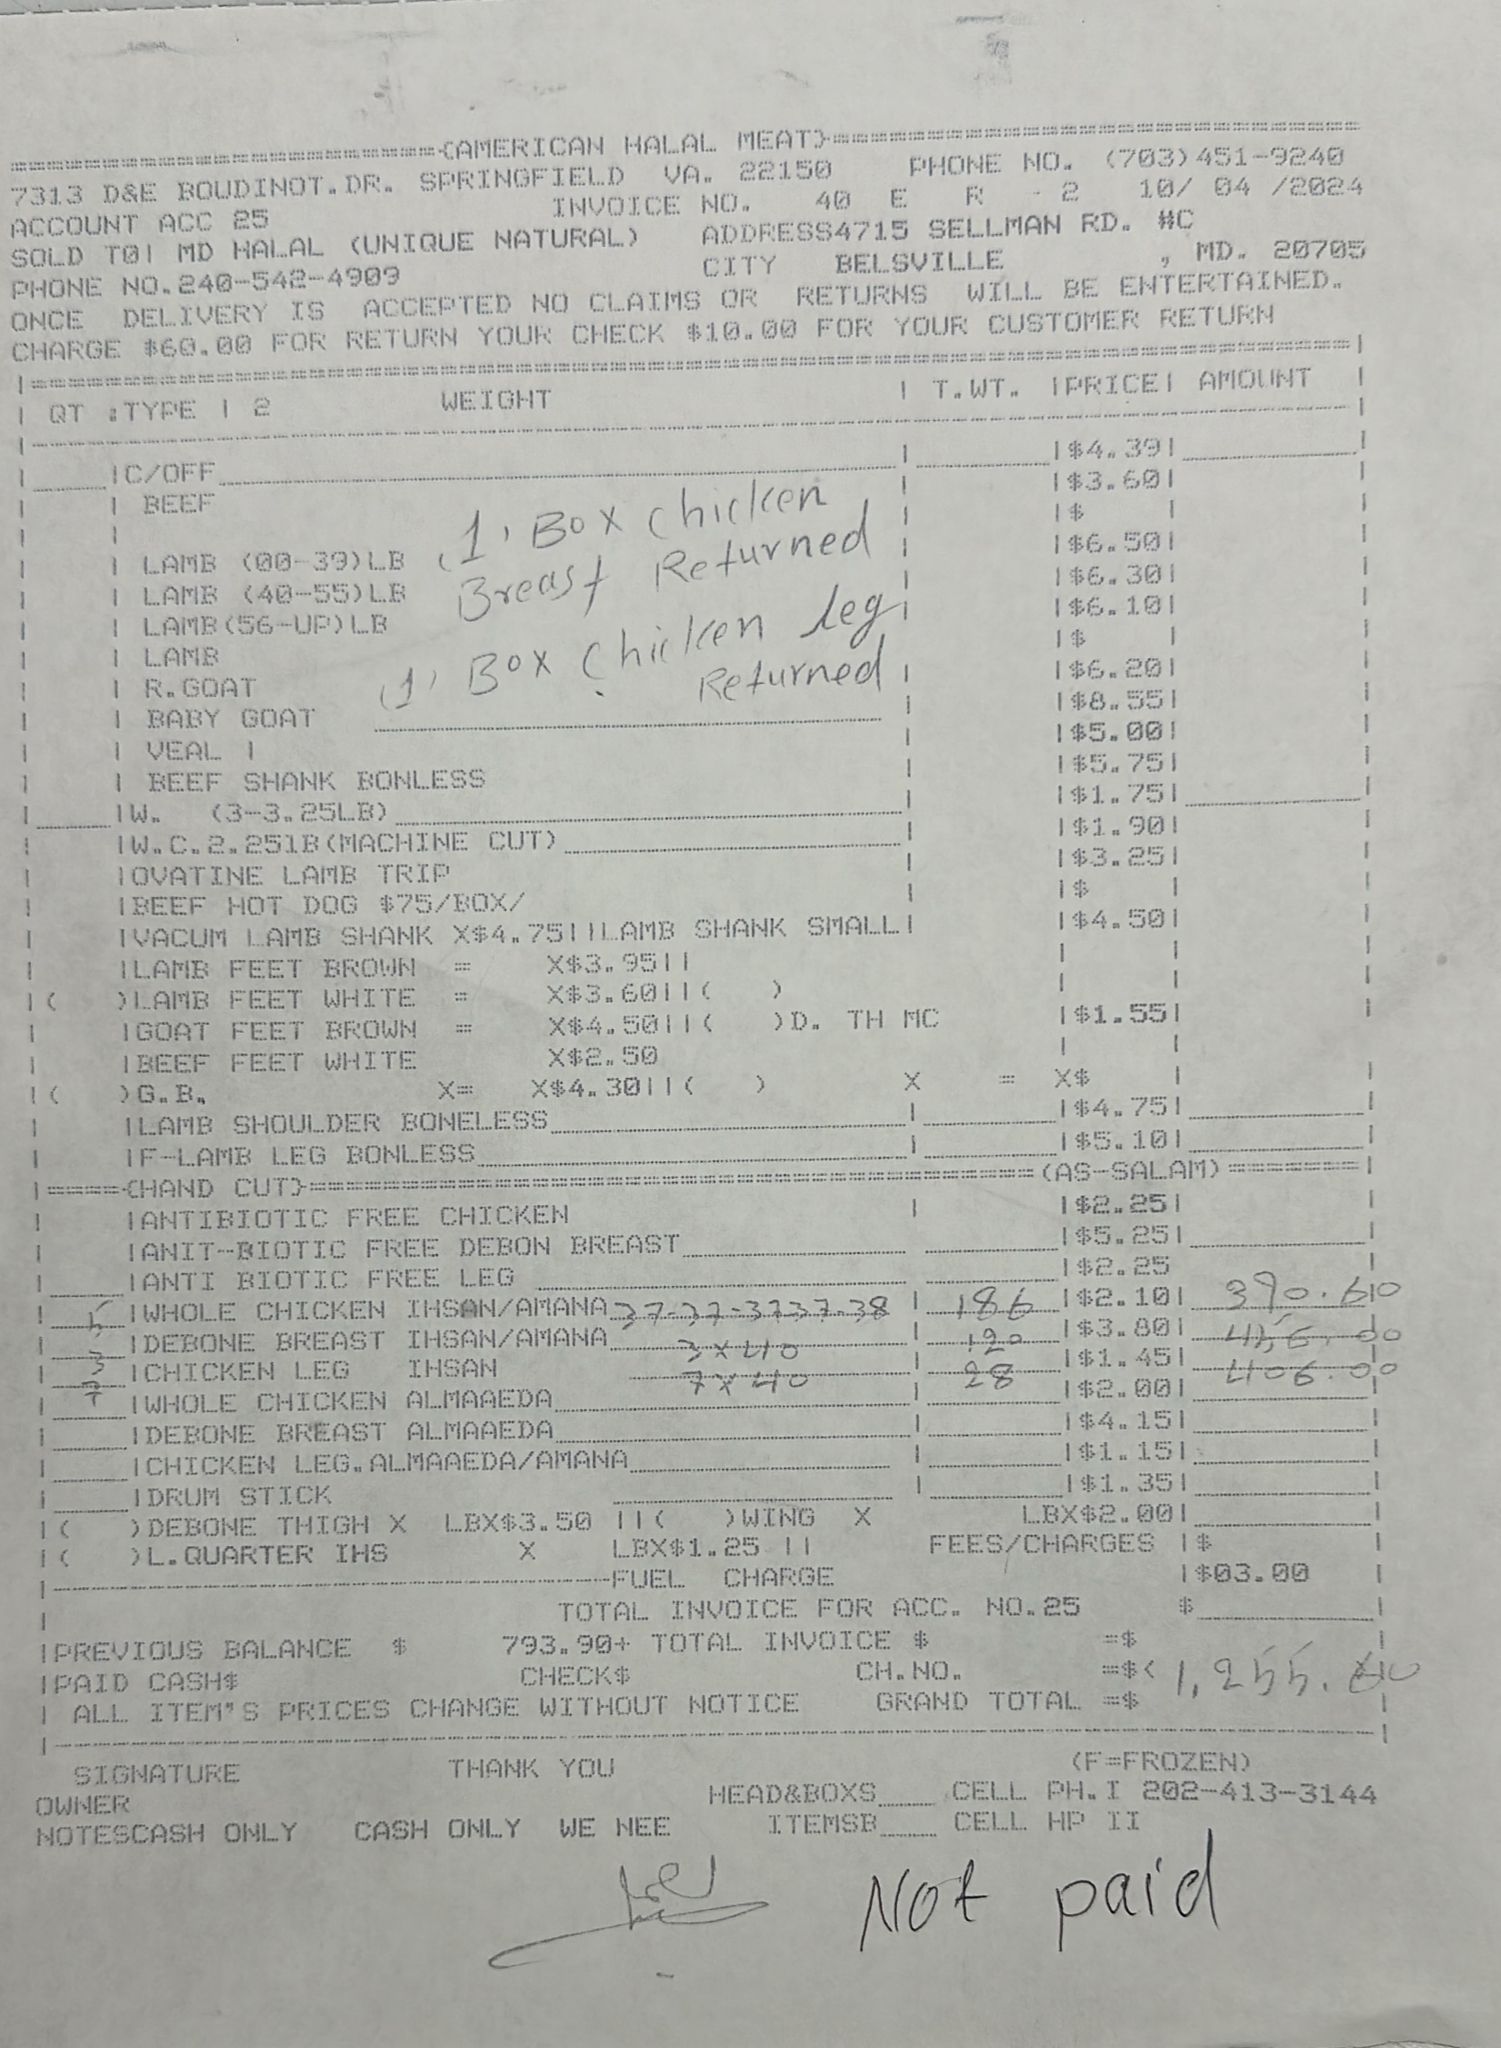 ====================={AMERICAN HALAL MEAT}==========================
7313 D&E BOUDINOT.DR. SPRINGFIELD VA. 22150 PHONE NO. (703)451-9240
ACCOUNT ACC 25 INVOICE NO. 40 E R - 2 10/ 04 /2024
SOLD TO| MD HALAL (UNIQUE NATURAL) ADDRESS4715 SELLMAN RD. #C
PHONE NO.240-542-4909 CITY BELSVILLE , MD. 20705
ONCE DELIVERY IS ACCEPTED NO CLAIMS OR RETURNS WILL BE ENTERTAINED.
CHARGE $60.00 FOR RETURN YOUR CHECK $10.00 FOR YOUR CUSTOMER RETURN
| QT :TYPE | 2 WEIGHT | T.WT. |PRICE| AMOUNT |
|C/OFF | |$4.39|
| BEEF |$3.60|
| |$ |
| LAMB (00-39)LB |$6.50|
| LAMB (40-55)LB |$6.30|
| LAMB(56-UP)LB |$6.10|
| LAMB |$ |
| R.GOAT |$6.20|
| BABY GOAT |$8.55|
| VEAL | |$5.00|
| BEEF SHANK BONLESS |$5.75|
1, Box chicken
Breast Returned
1, Box Chicken leg
Returned
|W. (3-3.25LB) |$1.75|
|W.C.2.25lB(MACHINE CUT) |$1.90|
|OVATINE LAMB TRIP |$3.25|
|BEEF HOT DOG $75/BOX/ |$ |
|VACUM LAMB SHANK X$4.75||LAMB SHANK SMALL| |$4.50|
|LAMB FEET BROWN = X$3.95||
|( )LAMB FEET WHITE = X$3.60||( )
|GOAT FEET BROWN = X$4.50||( )D. TH MC |$1.55|
|BEEF FEET WHITE X$2.50
|( )G.B. X= X$4.30||( ) X = X$ |
|LAMB SHOULDER BONELESS |$4.75|
|F-LAMB LEG BONLESS |$5.10|
|====={HAND CUT}==========================================(AS-SALAM)=======|
|ANTIBIOTIC FREE CHICKEN | |$2.25|
|ANIT-BIOTIC FREE DEBON BREAST |$5.25|
|ANTI BIOTIC FREE LEG |$2.25
5 |WHOLE CHICKEN IHSAN/AMANA 37-37-3737-38 | 186 |$2.10| 390.60
3 |DEBONE BREAST IHSAN/AMANA 3x40 | 120 |$3.80| 456.00
7 |CHICKEN LEG IHSAN 7x40 | 28 |$1.45| 406.00
|WHOLE CHICKEN ALMAAEDA |$2.00|
|DEBONE BREAST ALMAAEDA |$4.15|
|CHICKEN LEG.ALMAAEDA/AMANA |$1.15|
|DRUM STICK |$1.35|
|( )DEBONE THIGH X LBX$3.50 ||( )WING X LBX$2.00|
|( )L.QUARTER IHS X LBX$1.25 || FEES/CHARGES |$
|------------------------------FUEL CHARGE |$03.00 |
| TOTAL INVOICE FOR ACC. NO.25 $
|PREVIOUS BALANCE $ 793.90+ TOTAL INVOICE $ =$ |
|PAID CASH$ CHECK$ CH.NO. =$<
| ALL ITEM"S PRICES CHANGE WITHOUT NOTICE GRAND TOTAL =$ |
SIGNATURE THANK YOU (F=FROZEN)
OWNER HEAD&BOXS CELL PH.I 202-413-3144
NOTESCASH ONLY CASH ONLY WE NEE ITEMSB CELL HP II
Not paid